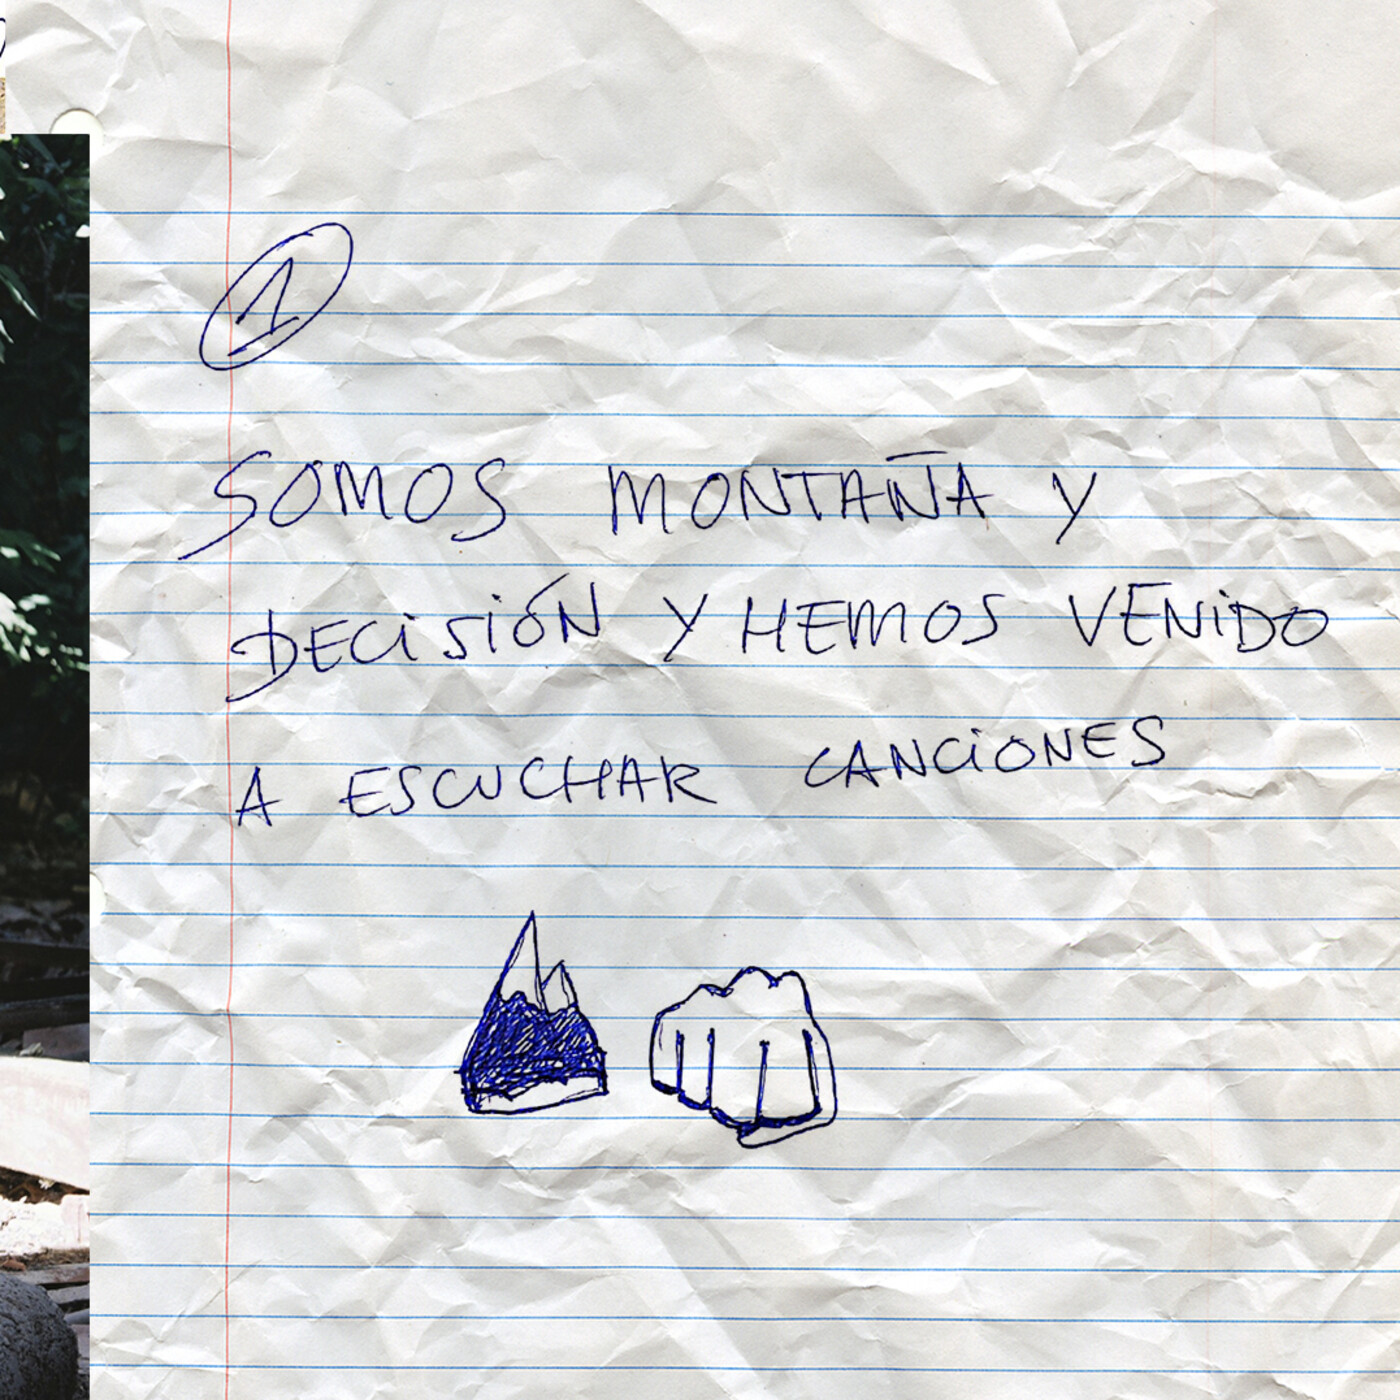 1
SOMOS MONTAÑA Y
DECISIÓN Y HEMOS VENIDO
A ESCUCHAR CANCIONES